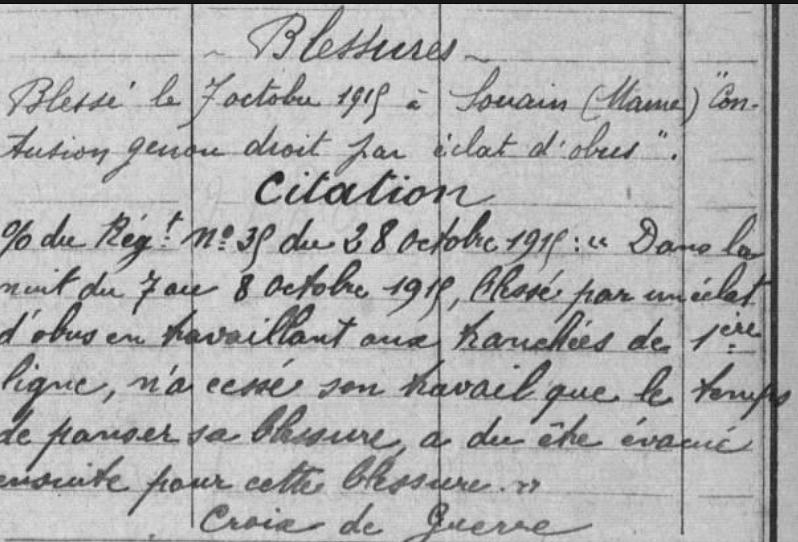 Blessures
Blessé le 7 octobre 1915 à Souain (Marne) "Con-
tusion genou droit par éclat d'obus".
Citation
O/o du Rég.t N.o 35 du 28 octobre 1915 : " Dans la
nuit du 7 au 8 octobre 1915, blessé par un éclat
d'obus en travaillant aux tranchées de 1ère
ligne, n'a cessé son travail que le temps
de panser sa blessure, a du être évacué
ensuite pour cette blessure."
Croix de Guerre